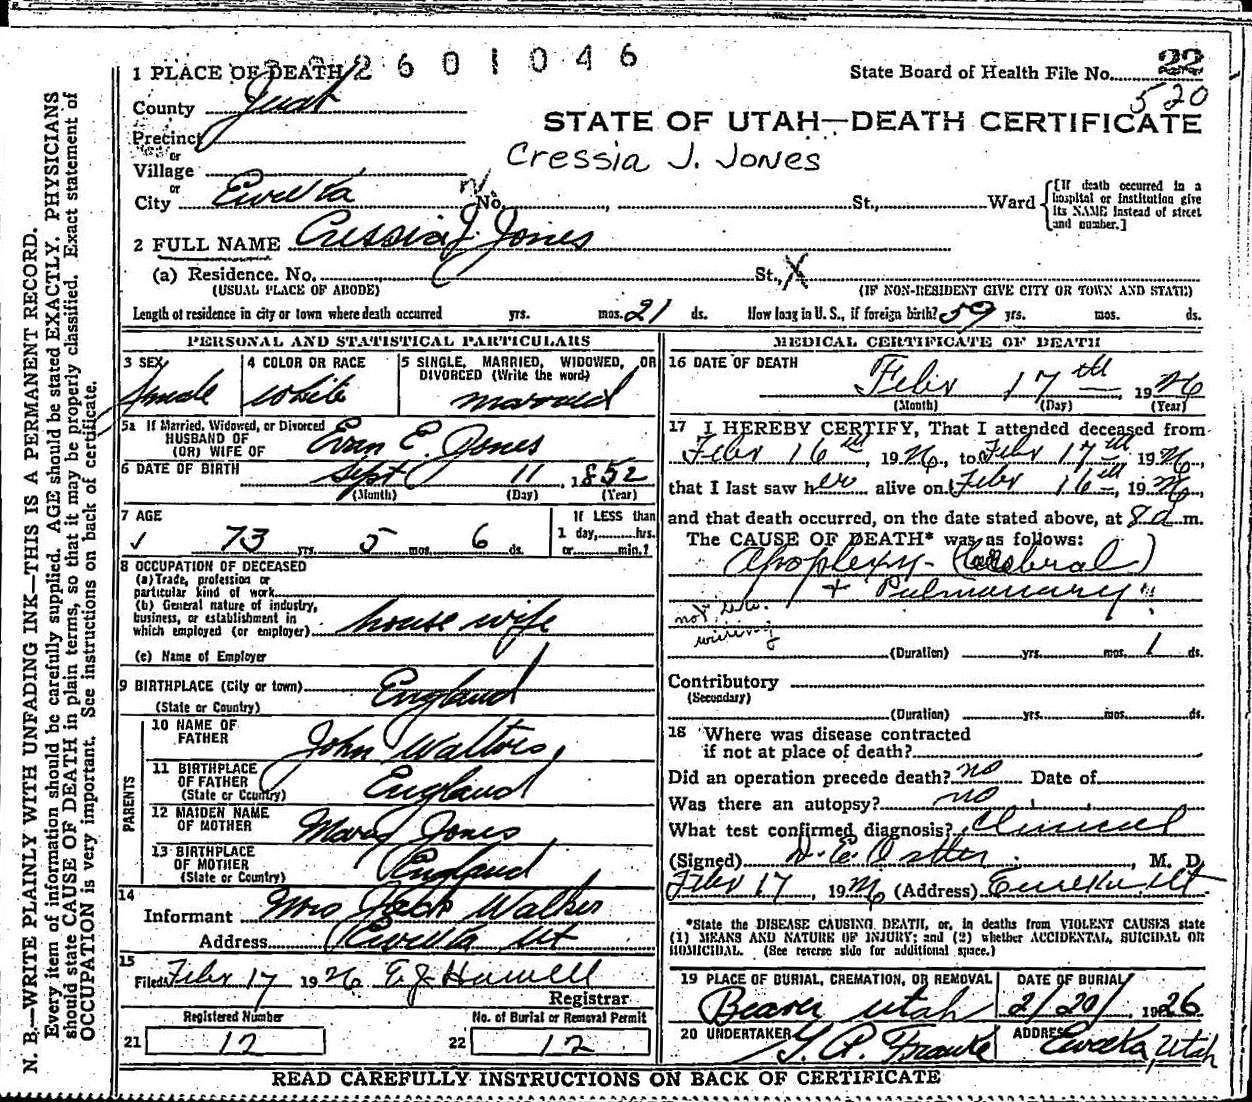 2601046
22
1 PLACE OF DEATH
State Board of Health File No.
520
County Juab
STATE OF UTAH—DEATH CERTIFICATE
Precinct
or
Cressia J. Jones
Village
or
City Eureka No. St., Ward [If death occurred in a hospital or institution give its NAME instead of street and number.]
2 FULL NAME Cressia J. Jones
(a) Residence. No. St., X
(USUAL PLACE OF ABODE) (IF NON-RESIDENT GIVE CITY OR TOWN AND STATE)
Length of residence in city or town where death occurred yrs. mos. 21 ds. How long in U. S., if foreign birth? 59 yrs. mos. ds.
PERSONAL AND STATISTICAL PARTICULARS
3 SEX female
4 COLOR OR RACE white
5 SINGLE, MARRIED, WIDOWED, OR DIVORCED (Write the word) married
5a If Married, Widowed, or Divorced
HUSBAND OF
(OR) WIFE OF Evan E. Jones
6 DATE OF BIRTH Sept 11, 1852
(Month) (Day) (Year)
7 AGE 73 yrs. 5 mos. 6 ds.
If LESS than
1 day, hrs.
or min.?
8 OCCUPATION OF DECEASED
(a) Trade, profession or
particular kind of work
(b) General nature of industry,
business, or establishment in
which employed (or employer) house wife
(c) Name of Employer
9 BIRTHPLACE (City or town)
(State or Country) England
PARENTS
10 NAME OF
FATHER John Walters
11 BIRTHPLACE
OF FATHER
(State or Country) England
12 MAIDEN NAME
OF MOTHER Mary Jones
13 BIRTHPLACE
OF MOTHER
(State or Country) England
14
Informant Mrs Jack Walker
Address Eureka Ut
15
Filed Febr 17 1926 E.J. Howell
Registrar
Registered Number No. of Burial or Removal Permit
21 12 22 12
MEDICAL CERTIFICATE OF DEATH
16 DATE OF DEATH
Febr 17th 1926
(Month) (Day) (Year)
17 I HEREBY CERTIFY, That I attended deceased from
Febr 16th, 1926, to Febr 17th, 1926,
that I last saw her alive on Febr 16th, 1926,
and that death occurred, on the date stated above, at 8 a m.
The CAUSE OF DEATH* was as follows:
Apoplexy - (Cerebral)
+ Pulmonary
(Duration) yrs. mos. 1 ds.
Contributory
(Secondary)
(Duration) yrs. mos. ds.
18 Where was disease contracted
if not at place of death?
Did an operation precede death? no Date of
Was there an autopsy? no
What test confirmed diagnosis? Clinical
(Signed) , M. D.
Febr 17, 1926 (Address) Eureka Ut
*State the DISEASE CAUSING DEATH, or, in deaths from VIOLENT CAUSES state
(1) MEANS AND NATURE OF INJURY; and (2) whether ACCIDENTAL, SUICIDAL OR
HOMICIDAL. (See reverse side for additional space.)
19 PLACE OF BURIAL, CREMATION, OR REMOVAL DATE OF BURIAL
Beaver Utah 2/20/ 1926
20 UNDERTAKER ADDRESS
Eureka, Utah
READ CAREFULLY INSTRUCTIONS ON BACK OF CERTIFICATE
N. B.—WRITE PLAINLY WITH UNFADING INK—THIS IS A PERMANENT RECORD.
Every item of information should be carefully supplied. AGE should be stated EXACTLY. PHYSICIANS
should state CAUSE OF DEATH in plain terms, so that it may be properly classified. Exact statement of
OCCUPATION is very important. See instructions on back of certificate.